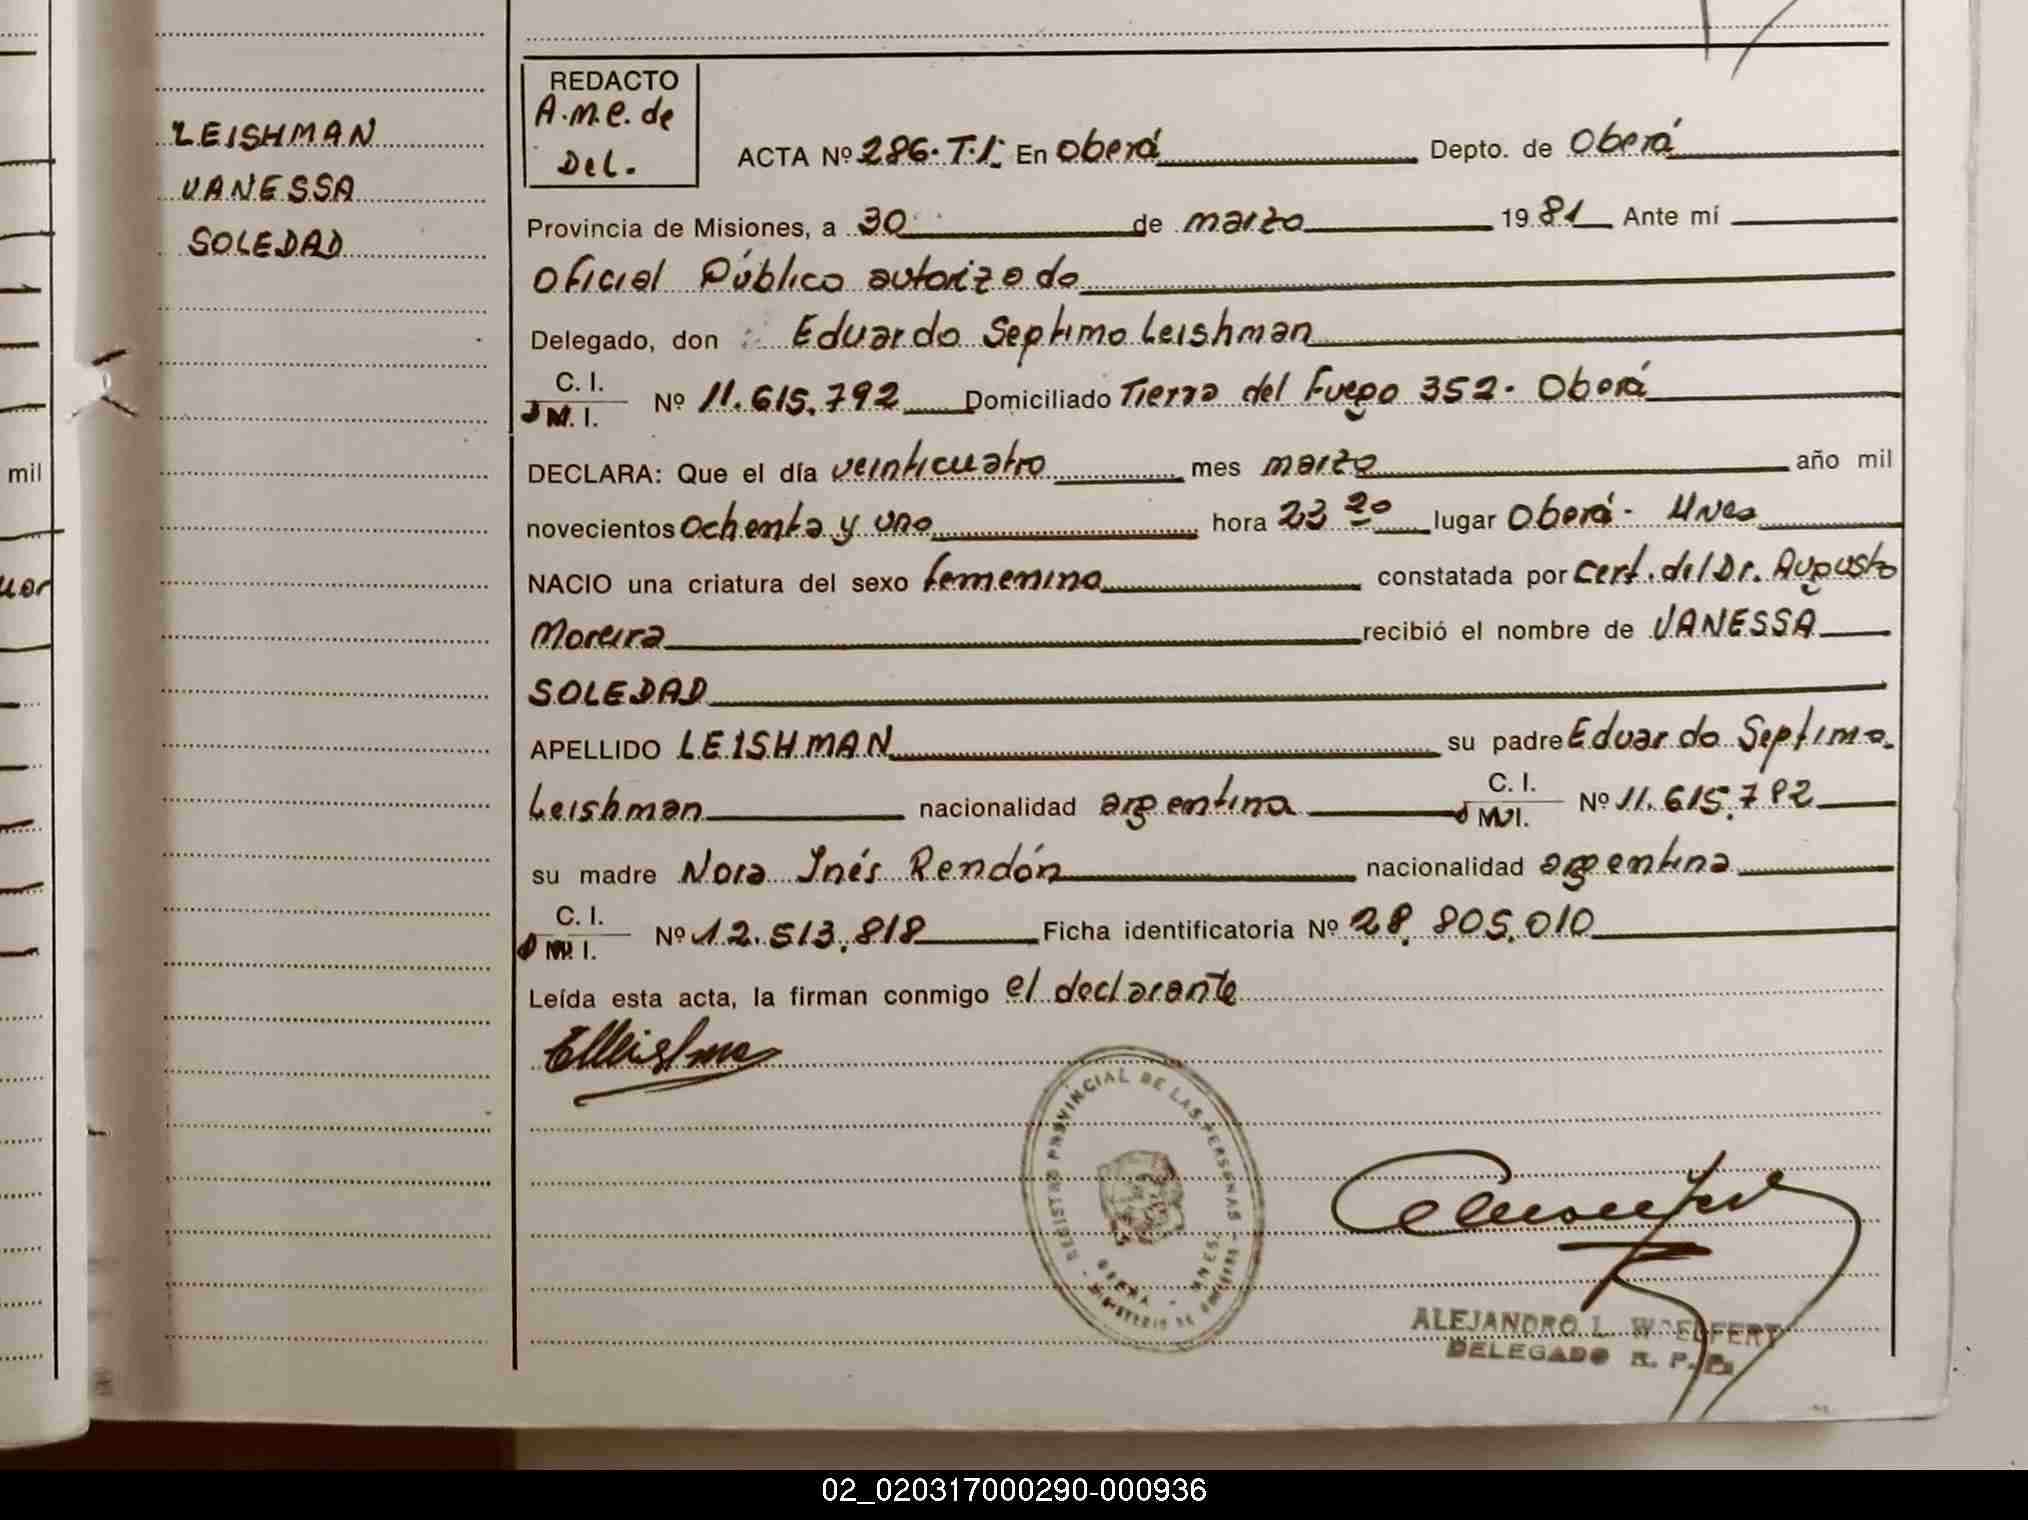 LEISHMAN
VANESSA
SOLEDAD
REDACTO
A.M.E. de
Del.
ACTA Nº 286. T.I. En Oberá Depto. de Oberá
Provincia de Misiones, a 30 de marzo 1981 Ante mí
Oficial Público autorizado
Delegado, don Eduardo Septimo Leishman
C. I.
M. I. Nº 11.615.792 Domiciliado Tierra del Fuego 352. Oberá
DECLARA: Que el día veinticuatro mes marzo año mil
novecientos ochenta y uno hora 23 20 lugar Oberá - Mnes
NACIO una criatura del sexo femenino constatada por cert. del Dr. Augusto
Moreira recibió el nombre de VANESSA
SOLEDAD
APELLIDO LEISHMAN su padre Eduardo Septimo
Leishman nacionalidad argentina C. I.
M. I. Nº 11.615.792
su madre Nora Inés Rendón nacionalidad argentina
C. I.
M. I. Nº 12.513.818 Ficha identificatoria Nº 28.805.010
Leída esta acta, la firman conmigo el declarante
REGISTRO PROVINCIAL DE LAS PERSONAS
OBERA - MNES.
MINISTERIO DE GOBIERNO
ALEJANDRO L. WOELFERT
DELEGADO R. P. P.
mil
02_020317000290-000936